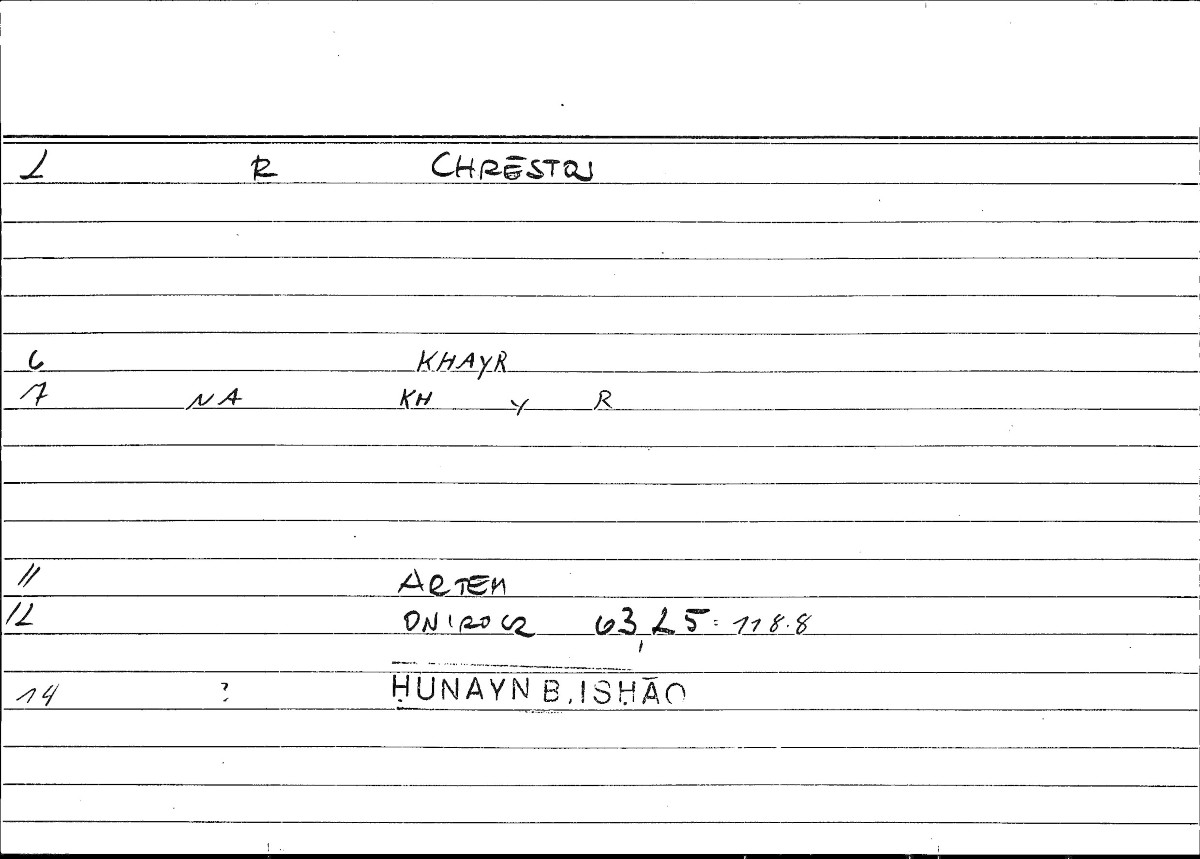 2 R CHRĒSTOS
6 KHAYR
7 NA KH Y R
11 ARTEM
12 ONIROCR 63,25 = 118.8
14 ? ḤUNAYN B. ISḤĀQ